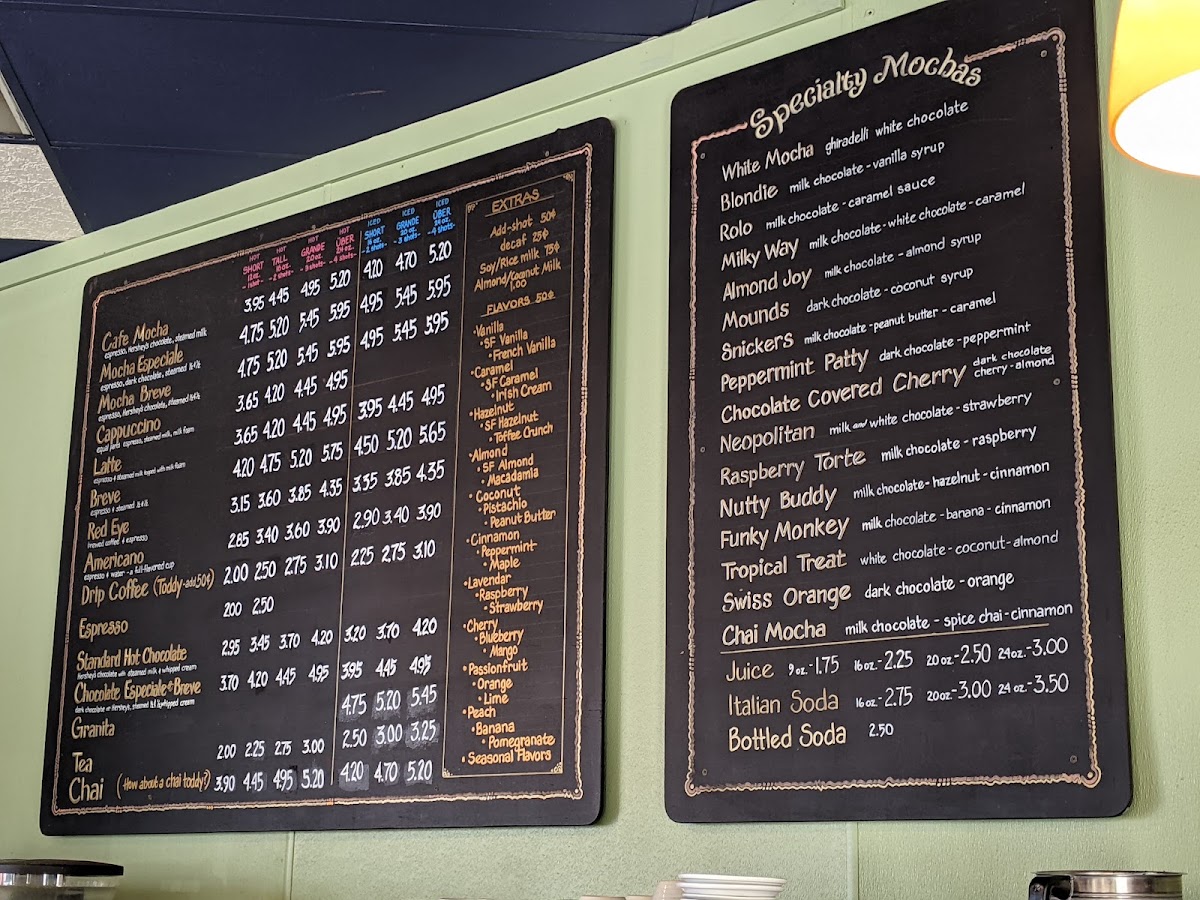 HOT SHORT 12 oz. -1 shot-
HOT TALL 16 oz. -2 shots-
HOT GRANDE 20 oz. -3 shots-
HOT ÜBER 24 oz. -4 shots-
ICED SHORT 16 oz. -2 shots-
ICED GRANDE 20 oz. -3 shots-
ICED ÜBER 24 oz. -4 shots-
Cafe Mocha 3.95 4.45 4.95 5.20 4.20 4.70 5.20
espresso, Hershey's chocolate, steamed milk
Mocha Especiale 4.75 5.20 5.45 5.95 4.95 5.45 5.95
espresso, dark chocolate, steamed 1/2 & 1/2
Mocha Breve 4.75 5.20 5.45 5.95 4.95 5.45 5.95
espresso, Hershey's chocolate, steamed 1/2 & 1/2
Cappuccino 3.65 4.20 4.45 4.95
equal parts espresso, steamed milk, milk foam
Latte 3.65 4.20 4.45 4.95 3.95 4.45 4.95
espresso & steamed milk topped with milk foam
Breve 4.20 4.75 5.20 5.75 4.50 5.20 5.65
espresso & steamed 1/2 & 1/2
Red Eye 3.15 3.60 3.85 4.35 3.35 3.85 4.35
brewed coffee & espresso
Americano 2.85 3.40 3.60 3.90 2.90 3.40 3.90
espresso & water - a full-flavored cup
Drip Coffee (Toddy-add 50¢) 2.00 2.50 2.75 3.10 2.25 2.75 3.10
Espresso 2.00 2.50
Standard Hot Chocolate 2.95 3.45 3.70 4.20 3.20 3.70 4.20
Hershey's chocolate with steamed milk & whipped cream
Chocolate Especiale & Breve 3.70 4.20 4.45 4.95 3.95 4.45 4.95
dark chocolate or Hershey's, steamed 1/2 & 1/2, whipped cream
Granita 4.75 5.20 5.45
Tea 2.00 2.25 2.75 3.00 2.50 3.00 3.25
Chai (How about a chai toddy?) 3.90 4.45 4.95 5.20 4.20 4.70 5.20
EXTRAS
Add-shot 50¢
decaf 25¢
Soy/Rice milk 75¢
Almond/Coconut Milk
1.00
FLAVORS 50¢
•Vanilla
•SF Vanilla
•French Vanilla
•Caramel
•SF Caramel
•Irish Cream
•Hazelnut
•SF Hazelnut
•Toffee Crunch
•Almond
•SF Almond
•Macadamia
•Coconut
•Pistachio
•Peanut Butter
•Cinnamon
•Peppermint
•Maple
•Lavendar
•Raspberry
•Strawberry
•Cherry
•Blueberry
•Mango
•Passionfruit
•Orange
•Lime
•Peach
•Banana
•Pomegranate
•Seasonal Flavors
Specialty Mochas
White Mocha ghiradelli white chocolate
Blondie milk chocolate - vanilla syrup
Rolo milk chocolate - caramel sauce
Milky Way milk chocolate - white chocolate - caramel
Almond Joy milk chocolate - almond syrup
Mounds dark chocolate - coconut syrup
Snickers milk chocolate - peanut butter - caramel
Peppermint Patty dark chocolate - peppermint
Chocolate Covered Cherry dark chocolate
cherry - almond
Neopolitan milk and white chocolate - strawberry
Raspberry Torte milk chocolate - raspberry
Nutty Buddy milk chocolate - hazelnut - cinnamon
Funky Monkey milk chocolate - banana - cinnamon
Tropical Treat white chocolate - coconut - almond
Swiss Orange dark chocolate - orange
Chai Mocha milk chocolate - spice chai - cinnamon
Juice 9 oz.-1.75 16 oz.-2.25 20 oz.-2.50 24 oz.-3.00
Italian Soda 16 oz.-2.75 20 oz.-3.00 24 oz.-3.50
Bottled Soda 2.50